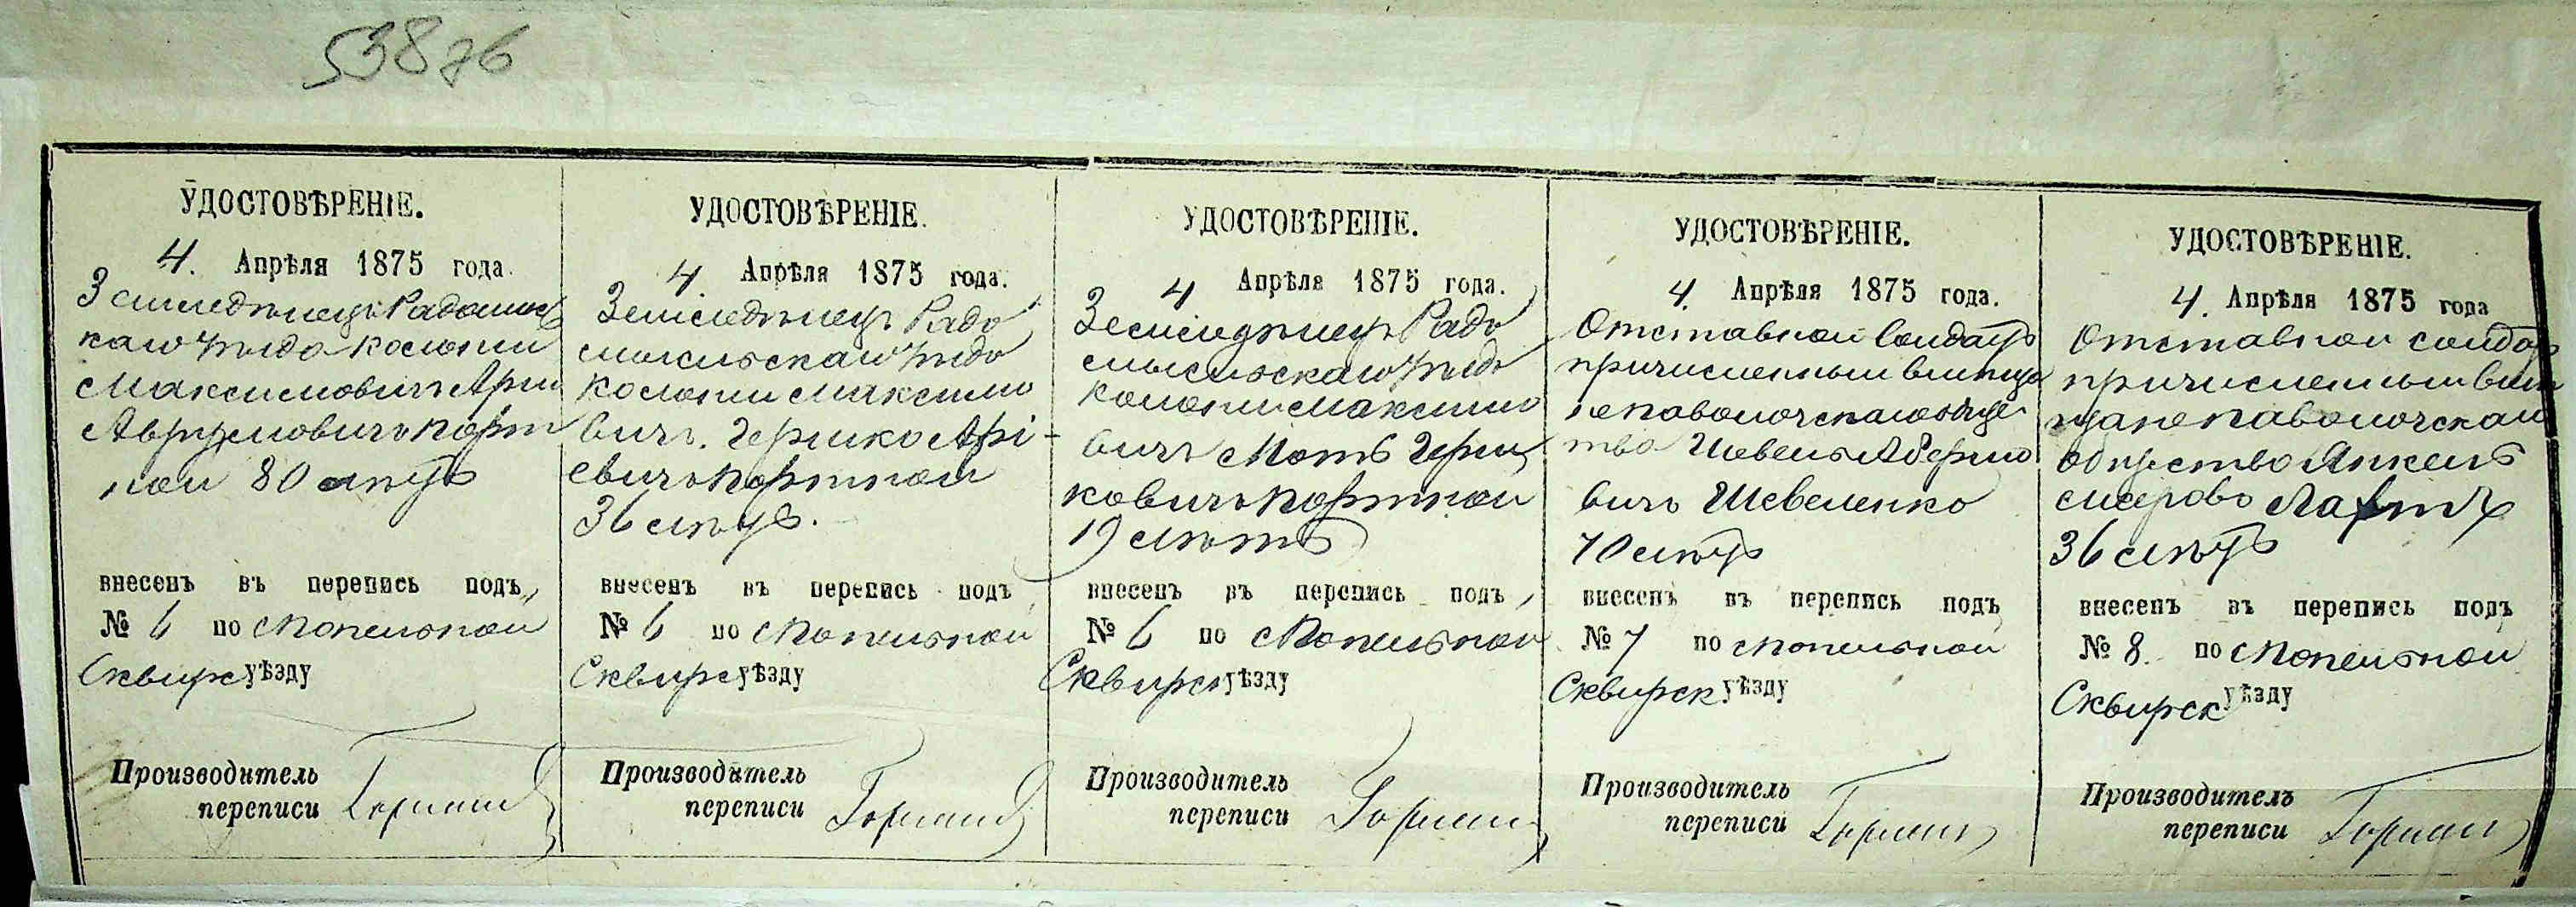 53876
УДОСТОВѢРЕНІЕ.
4. Апрѣля 1875 года.
Земледѣлецъ Радомысль
каго уѣзда колоніи
Максимовичъ Арій
Авруммовичъ Порт
ной 80 лѣтъ
внесенъ въ перепись подъ
№ 6 по м Попельной
Сквирс уѣзду
Производитель
переписи
УДОСТОВѢРЕНІЕ.
4. Апрѣля 1875 года.
Земледѣлецъ Радо
мысльскаго уѣзда
колоніи Максимо
вичъ. Гершко Арі-
евичъ Портной
36 лѣтъ.
внесенъ въ перепись подъ
№ 6 по м Попельной
Сквирс уѣзду
Производитель
переписи
УДОСТОВѢРЕНІЕ.
4 Апрѣля 1875 года.
Земледѣлецъ Радо
мысльскаго уѣзда
колоніи Максимо
вичъ Мотъ Герш
ковичъ Портной
19 лѣтъ
внесенъ въ перепись подъ
№ 6 по м Попельной
Сквирс уѣзду
Производитель
переписи
УДОСТОВѢРЕНІЕ.
4. Апрѣля 1875 года.
Отставной Солдатъ
причисленный въ мѣща
не Паволочскаго обще
тва
вичъ Шевеленко
70 лѣтъ
внесенъ въ перепись подъ
№ 7 по м Попельной
Сквирск уѣзду
Производитель
переписи
УДОСТОВѢРЕНІЕ.
4. Апрѣля 1875 года
Отставной солдат
причисленный въ мѣ
щане Паволочскаго
общество Янкель
36 лѣтъ
внесенъ въ перепись подъ
№ 8. по м Попельной
Сквирск уѣзду
Производитель
переписи